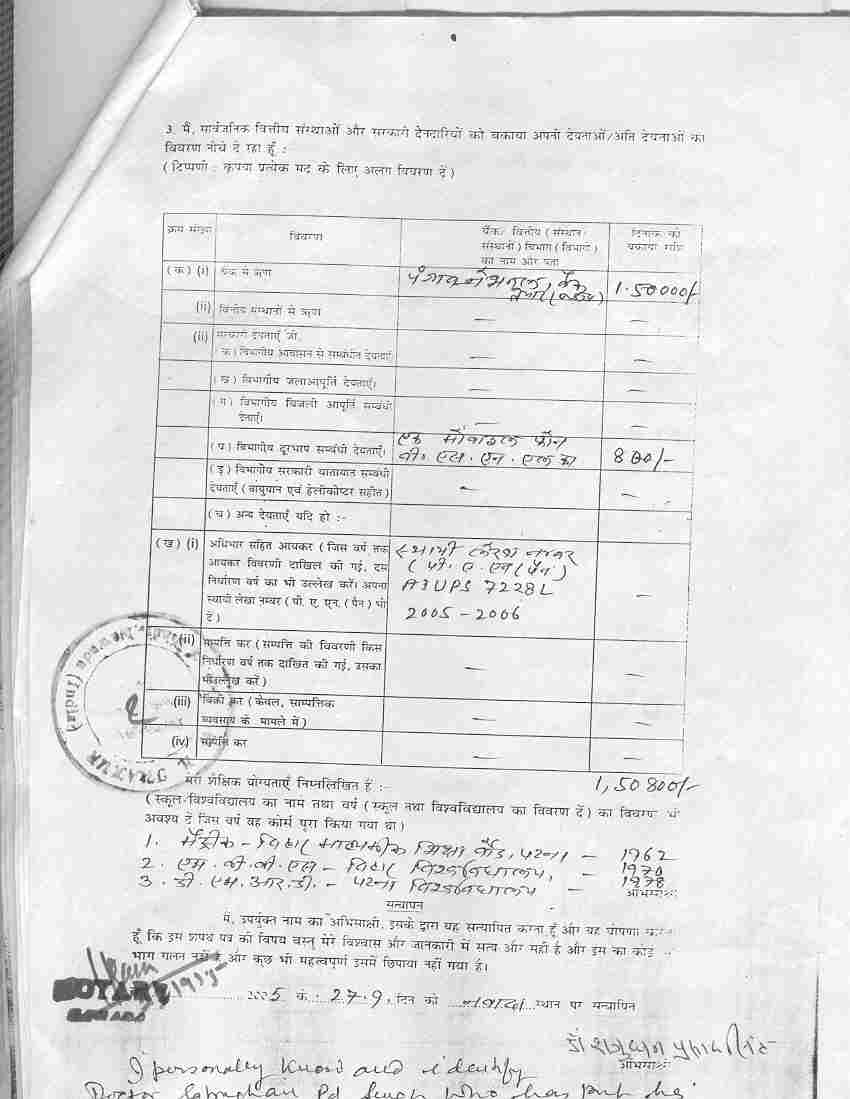 3. मैं, सार्वजनिक वित्तीय संस्थाओं और सरकारी देनदारियों को बकाया अपनी देयताओं/अति देयताओं का
विवरण नीचे दे रहा हूँ :
( टिप्पणी : कृपया प्रत्येक मद के लिए अलग विवरण दें )
क्रम संख्या विवरण बैंक/ वित्तीय ( संस्थान/ दिनांक को
संस्थानों ) विभाग ( विभागों ) बकाया राशि
का नाम और पता
( क ) (i) बैंक से ऋण पंजाब नेशनल, बैंक 1.50000/-
(ii) वित्तीय संस्थानों से ऋण — —
(ii) सरकारी देयताएँ जो,
क ) विभागीय आवासन से सम्बंधित देयताएँ — —
( ख ) विभागीय जलआपूर्ति देयताएँ। — —
( ग ) विभागीय बिजली आपूर्ति सम्बंधी
देताएँ। — —
( घ ) विभागीय दूरभाष सम्बंधी देयताएँ। एक मोबाइल फोन
बी. एस. एन. एल का 800/-
( ङ ) विभागीय सरकारी यातायात सम्बंधी
देयताएँ ( वायुयान एवं हेलीकोप्टर सहीत ) — —
( च ) अन्य देयताएँ यदि हो : -
( ख ) (i) अधिभार सहित आयकर ( जिस वर्ष तक स्थायी लेखा नम्बर
आयकर विवरणी दाखिल की गई, उस ( पी. ए. एन ( पैन )
निर्धारण वर्ष का भी उल्लेख करें। अपना A3UPS 7228L —
स्थायी लेखा नम्बर ( पी. ए. एन. ( पैन ) भी
दें ) 2005-2006
(ii) सम्पत्ति कर ( सम्पत्ति की विवरणी किस
निर्धारण वर्ष तक दाखिल की गई, उसका — —
भी उल्लेख करें )
(iii) बिक्री कर ( केवल, साम्पत्तिक
व्यवसाय के मामले में ) — —
(iv) सम्पत्ति कर — —
मेरी शैक्षिक योग्यताएँ निम्नलिखित हैं :- 1,50800/-
( स्कूल-विश्वविद्यालय का नाम तथा वर्ष ( स्कूल तथा विश्वविद्यालय का विवरण दें ) का विवरण भी
अवश्य दें जिस वर्ष वह कोर्स पूरा किया गया था )
1. मैट्रीक - बिहार माध्यमिक शिक्षा बोर्ड, पटना - 1962
2. एम. बी. बी. एस - बिहार विश्वविधालय, - 1970
3. डी. एम. आर. डी. - पटना विश्वविधालय - 1978
अभिसाक्षी
सत्यापन
मैं, उपर्युक्त नाम का अभिसाक्षी, इसके द्वारा यह सत्यापित करता हूँ और यह घोषणा करता
हूँ कि इस शपथ पत्र की विषय वस्तु मेरे विश्वास और जानकारी में सत्य और सही है और इस का कोई
भाग गलत नहीं है और कुछ भी महत्वपूर्ण इसमें छिपाया नहीं गया है।
NOTARY
2005 के : 27.9, दिन को नवादा स्थान पर सत्यापित
अभिसाक्षी
I personally know and identify
Doctor Pd Singh who has put his